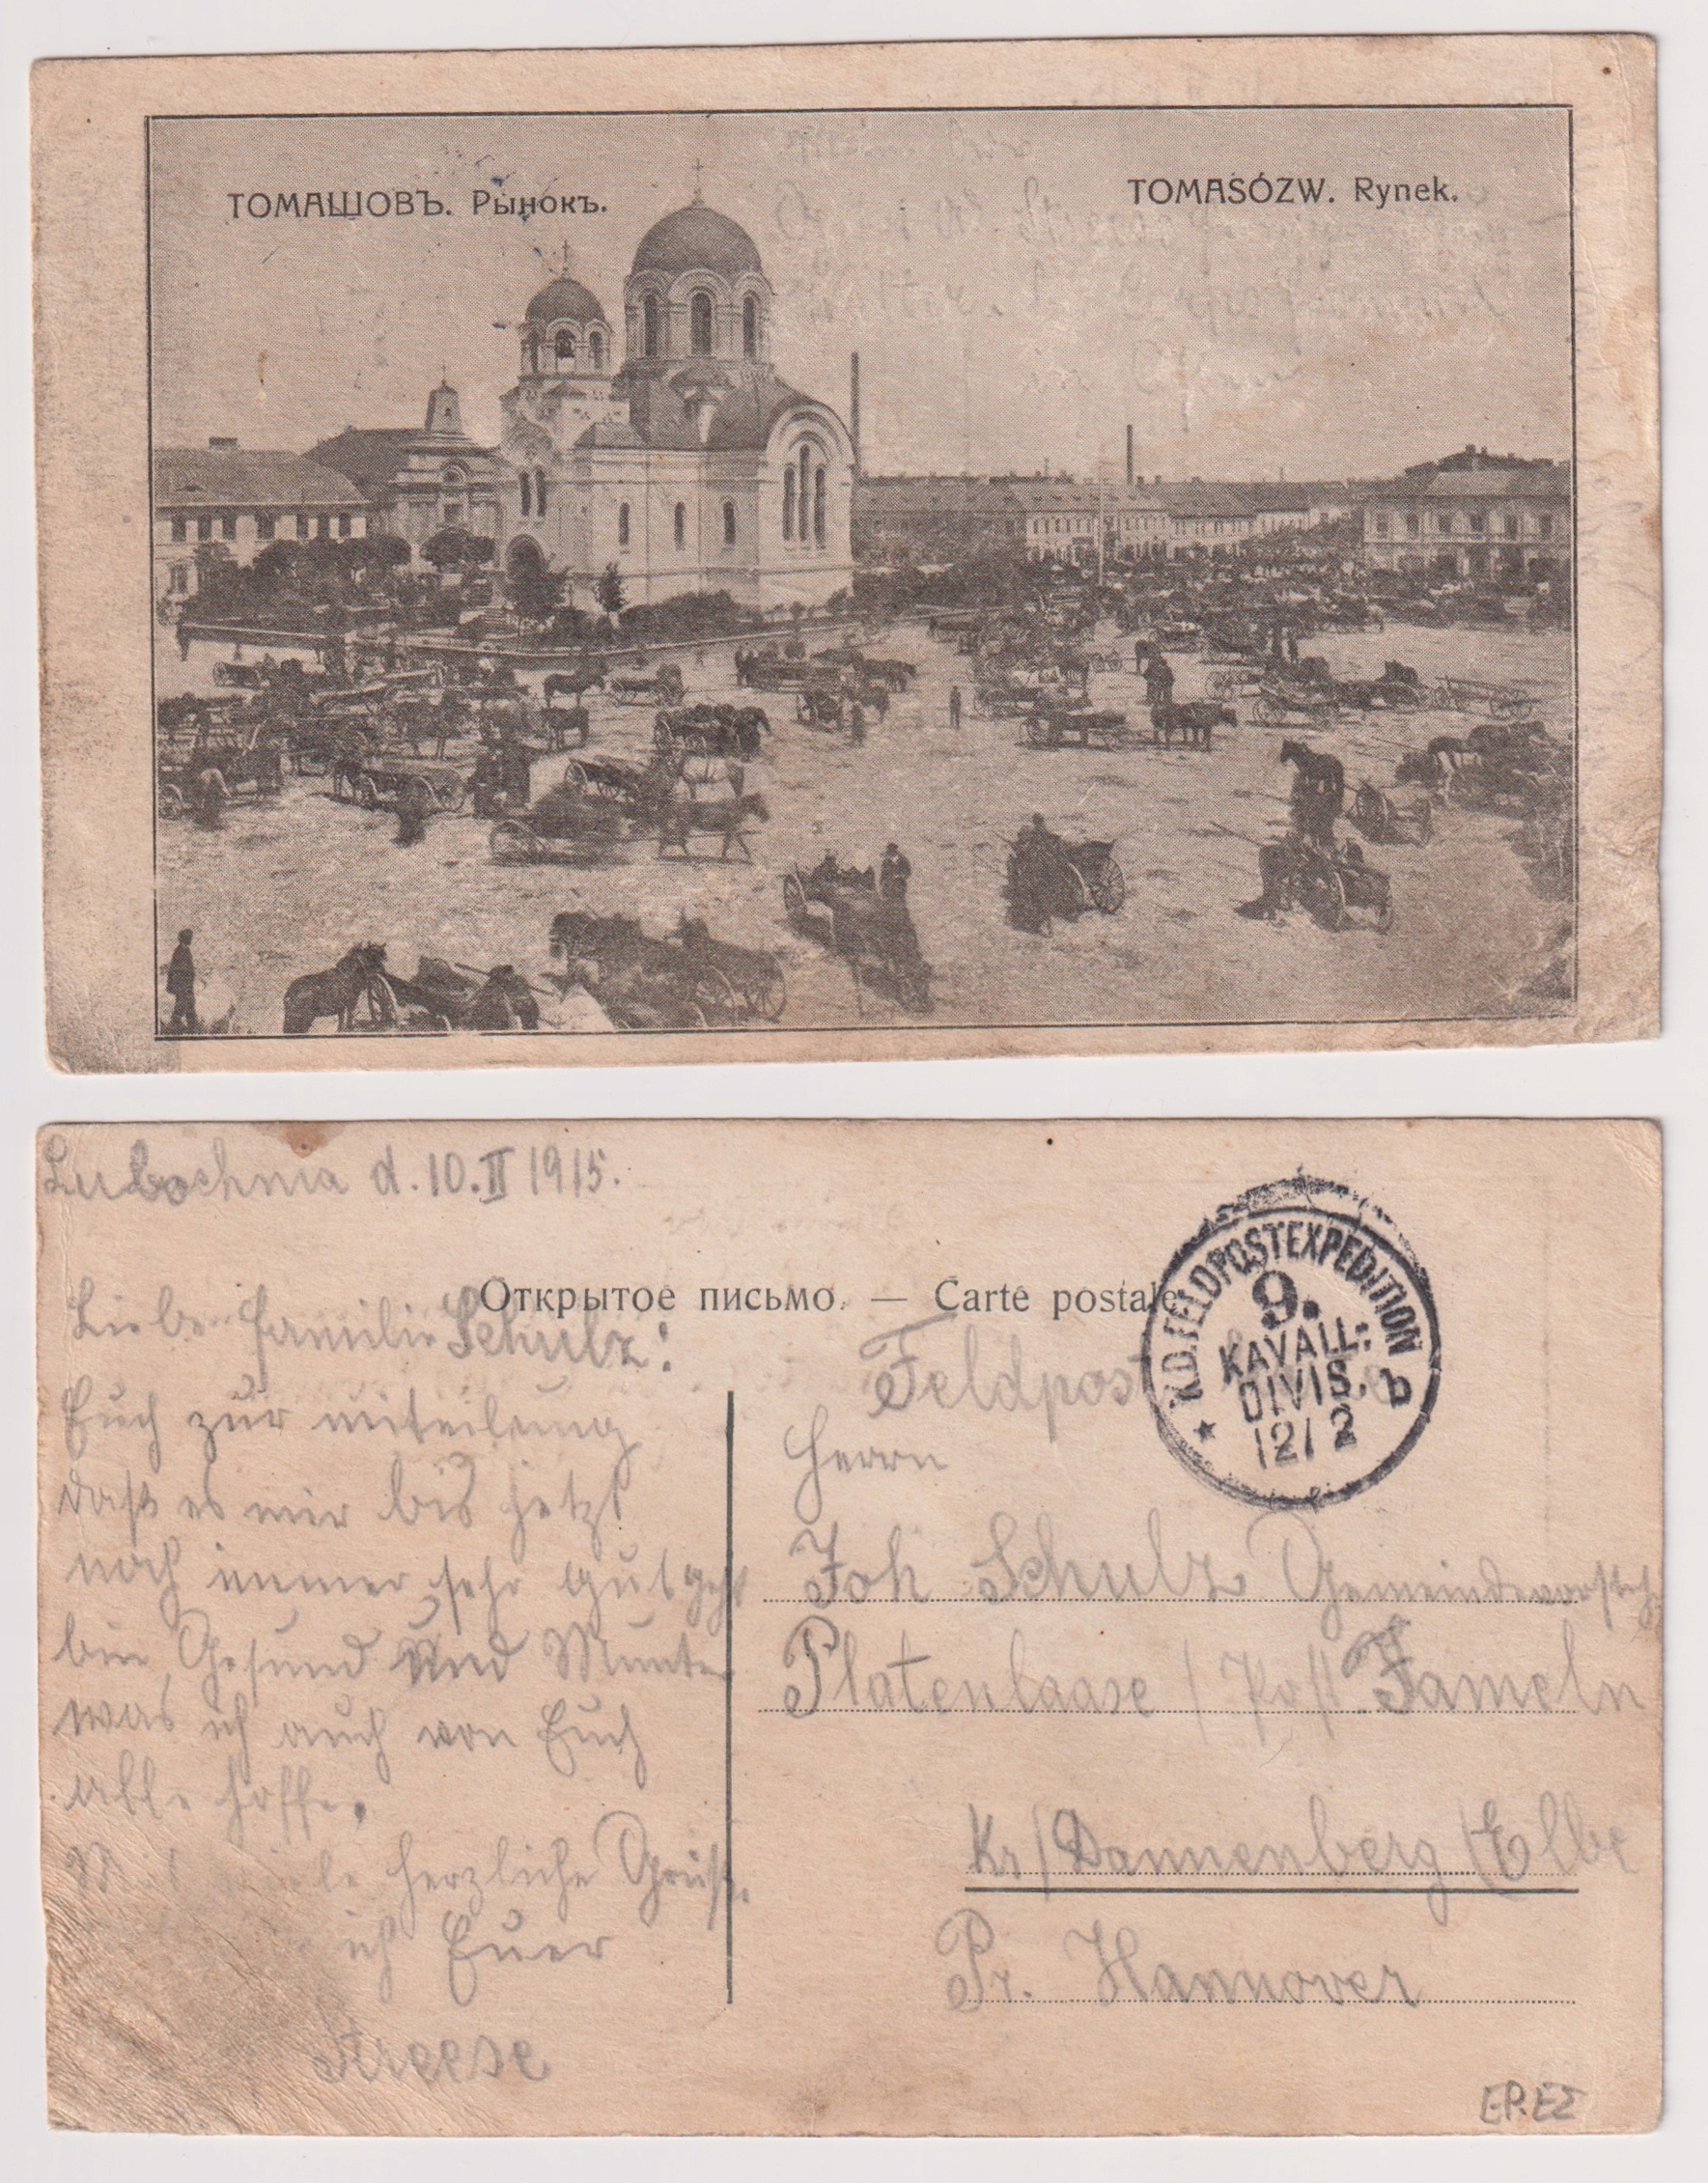 ТОМАШОВЪ. Рынокъ.
TOMASÓZW. Rynek.
Lubochnia d. 10. II 1915.
Открытое письмо. — Carte postale
Liebe Familie Schulz!
Euch zur mitteilung
daß es mir bis jetzt
noch immer sehr gut geht
bin Gesund und Munter
was ich auch von Euch
alle hoffe.
Mit viele herzliche Grüße.
ich Euer
Kreese
K.D. FELDPOSTEXPEDITION
9.
KAVALL:
DIVIS. b
12/2
Feldpost
Herrn
Joh Schulz Gemeindevorsteh.
Platenlaase / Post Jameln
Kr/Dannenberg /Elbe
Pr. Hannover
EP.EΣ